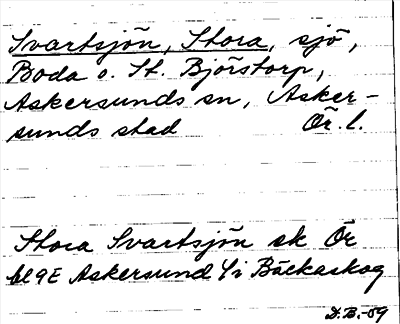 Svartsjön, Stora, sjö,
Boda o. St. Björstorp,
Askersunds sn, Asker-
sunds stad Ör. l.
Stora Svartsjön sk Ör
bl 9E Askersund i Bäckaskog
D.B.-59